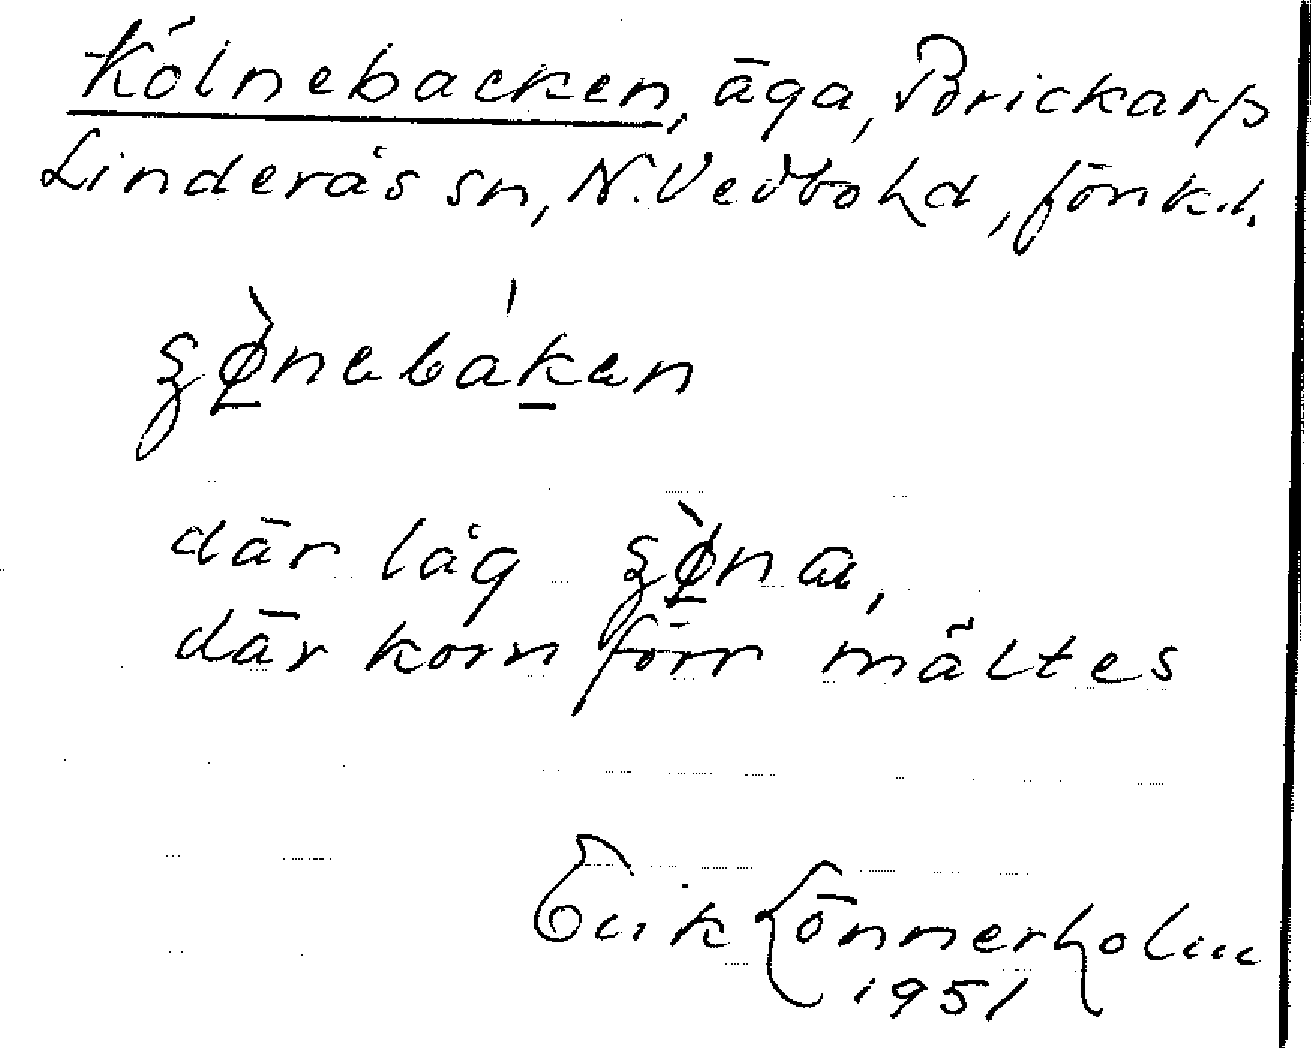 Kölnebacken, äga, Brickarp
Linderås sn, N. Vedbo hd, Jönk. l.
där låg
där korn förr mältes
Erik Lönnerholm
1951